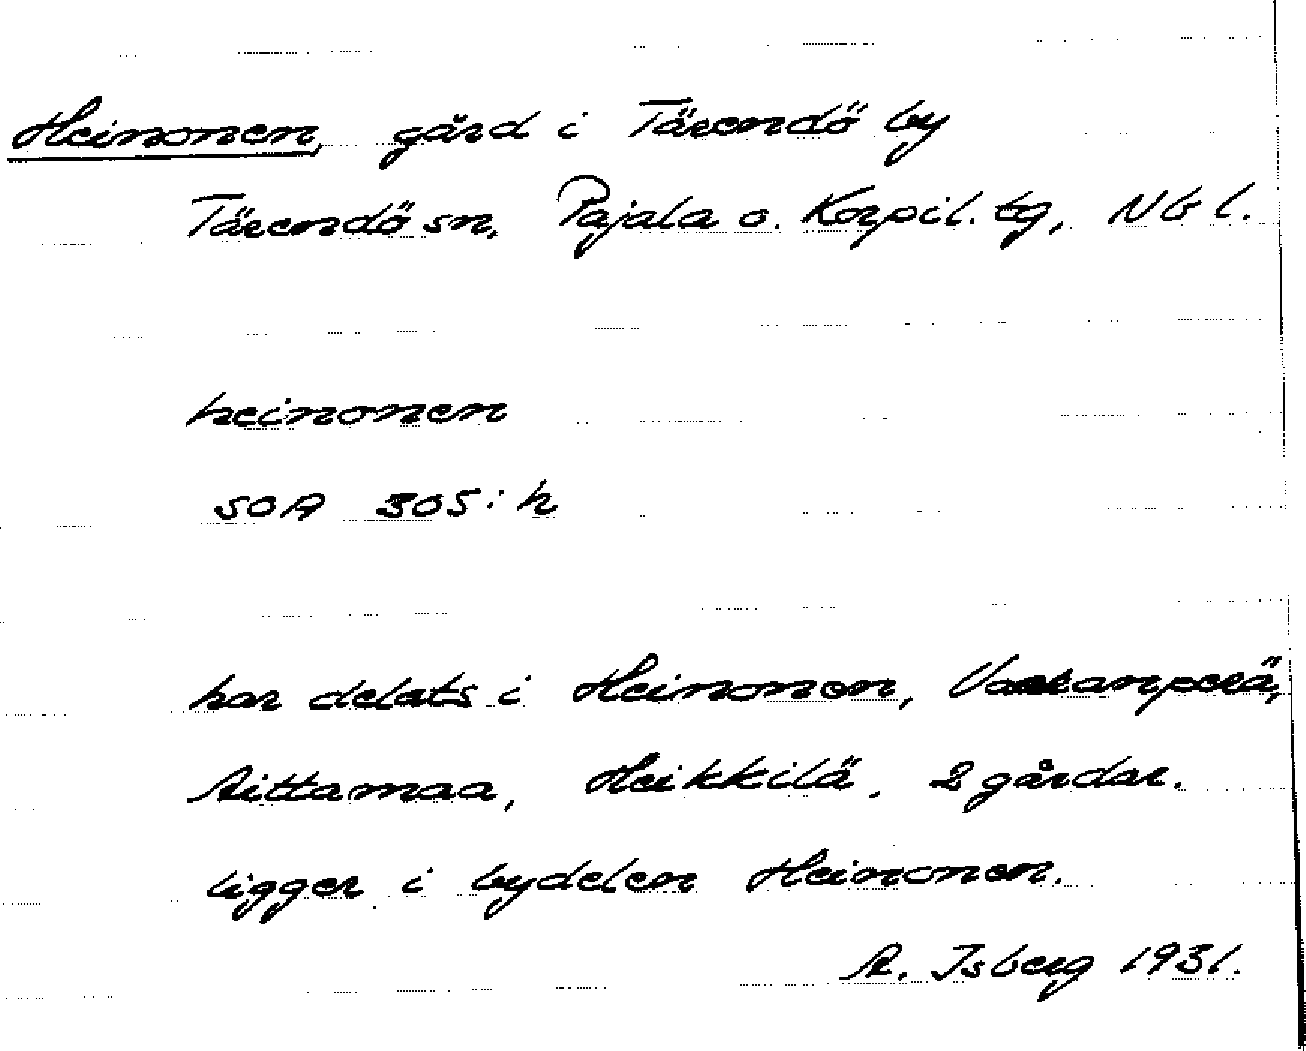 Heinonen, gård i Tärendö by
Tärendö sn, Pajala o. Korpil. tg, Nb l.
heinonen
SOA 305: h
har delats i Heinonen, Vaaranperä,
Aittamaa, Heikkilä, 2 gårdar.
ligger i bydelen Heinonen.
A. Isberg 1931.